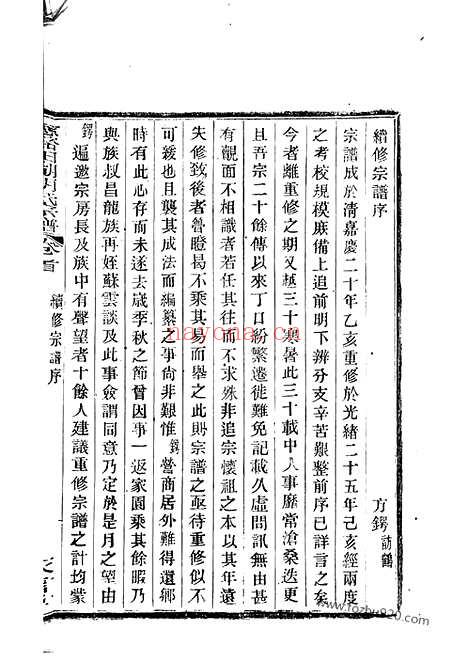 續修宗譜序
方鍔訪鶴
宗譜成於清嘉慶二十年乙亥重修於光緒二十五年己亥經兩度
之考校規模麻備上追前明下辨分支辛苦艱整前序已詳言之矣
今者離重修之期又越三十寒暑此三十載中人事歷常滄桑迭更
且吾宗二十餘傳以來丁口紛繁遷徙難免記載久虛聞訊無由甚
有覿面不相識者若其任往而不求殊非追宗懷祖之本以其年遠
失修致後者魯瞪曷不乘其易而舉之此則宗譜之亟待重修似不
可緩也且襲其成法而編纂之事尚非艱惟鍔營商居外難得還鄉
時有此心存而未遂去歲季秋之節曾因事一返家園乘其餘暇乃
與族叔昌龍族再姪蘇雲談及此事僉謂同意乃定於是月之望由
鍔遍邀宗房長及族中有聲望者十餘人建議重修宗譜之計均蒙
宗譜 卷首
續修宗譜序
nayona.cn
www.fozhu920.com